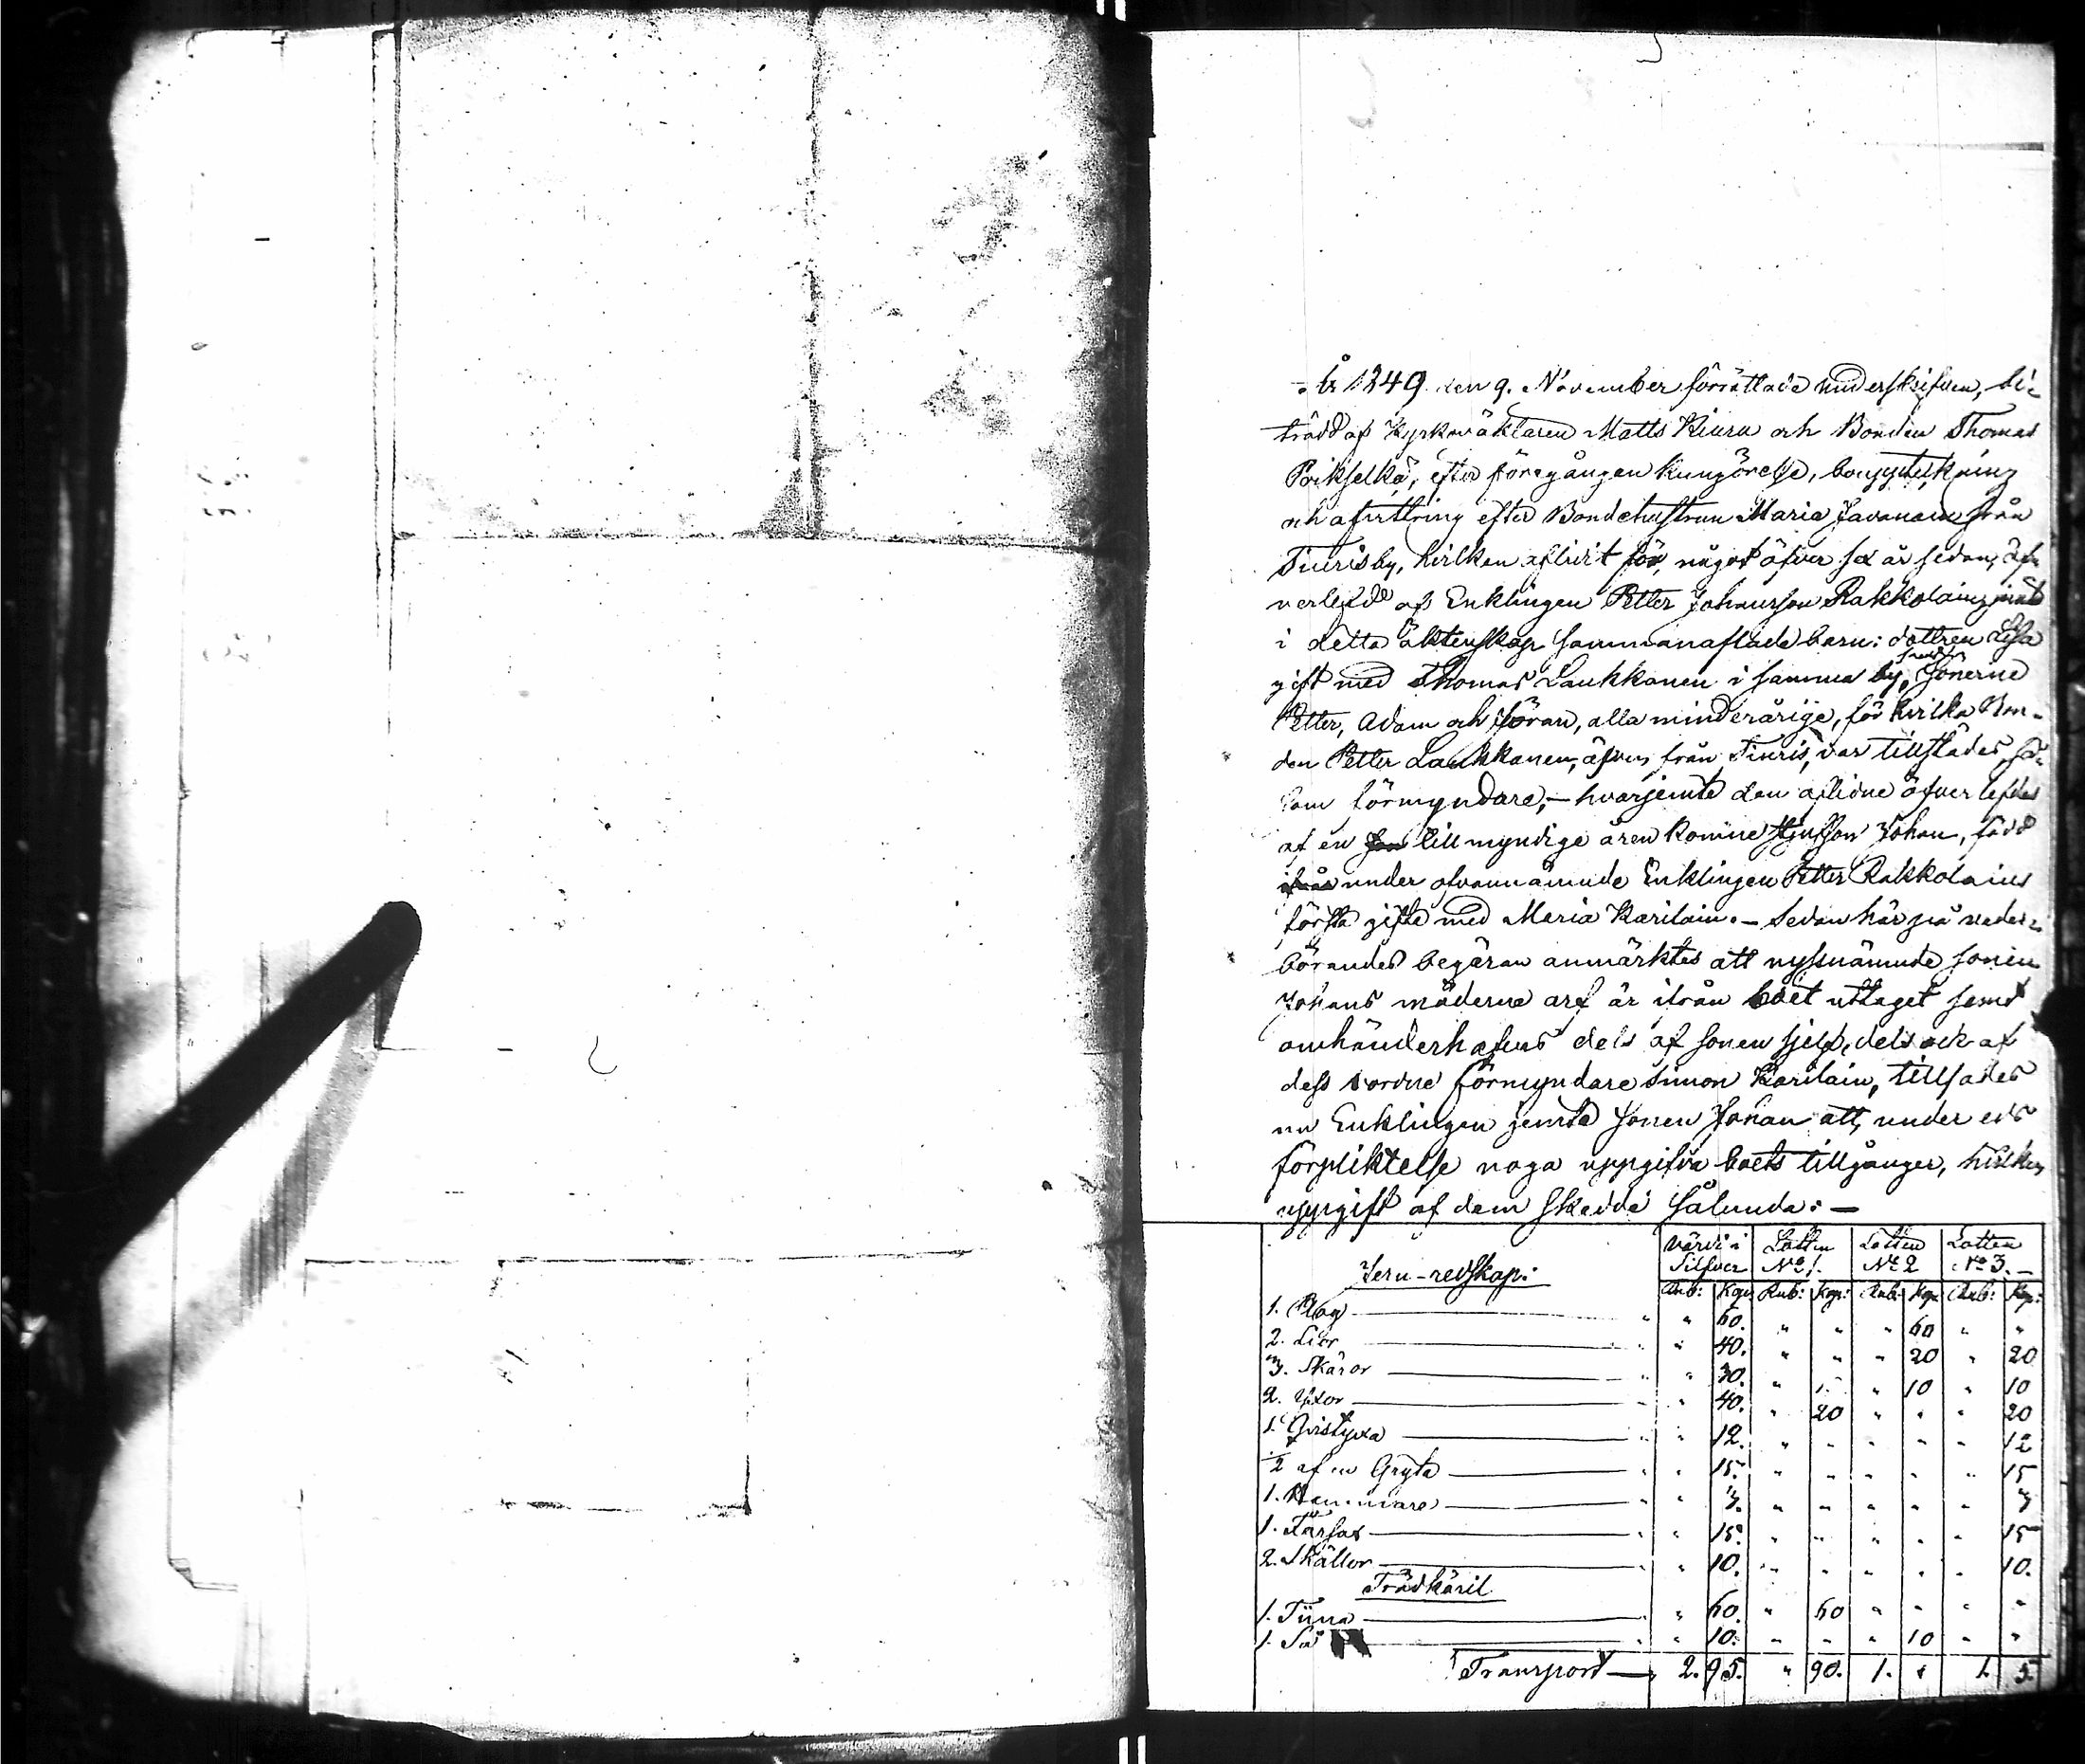 År 1849 den 9. November förrättade undersktifven, bi-
trädd af Kyrkoväktaren Matts Kiuru och Bonden Thomas
Poikselkä, efter föregången Kungörelse, bouppteckning
och afvittring efter Bondehustrun Maria Javanain från
Tiuris by, hvilken aflidit för något öfver sex år sedan, öf-
verlefd af Enklingen Petter Johansson Rakkolain, med
i detta äktenskap sammanaflade barn: dottren Lisa
gift med Thomas Laukkanen i samma by, Sönerne
Petter, Adam och Göran, alla minderårige, för hvilka Bon-
den Petter Laukkanen, äfven från Tiuris, var tillstädes, så-
som förmyndare, — hvarjemte den aflidne öfverlefdes
af en till myndige åren komne styfson Johan, född
under ofvannämnde Enklingen Petter Rakkolains
första gifte med Maria Karilain. — Sedan här på veder-
börandes begäran anmärktes att nyssnämnde sonen
Johans möderne arf är ifrån boet uttaget samt
omhänderhafves dels af sonen sjelf, dels ock af
dess vordne förmyndare Simon Karilain, tillsades
nu Enklingen jemte sonen Johan att, under eds
förpliktelse noga uppgifva boets tillgångar, hvilken
uppgift af dem skedde sålunda: —
Jern-redskap: Värde i Silfver Lotten No 1. Lotten No 2 Lotten No 3. —
Rub: Kop: Rub: Kop: Rub: Kop: Rub: Kop:
1. Plog — " 60. " " " 60 " "
2. Liar — " 40. " " " 20 " 20
3. Skäror — " 30. " 10 " 10 " 10
2. Yxor — " 40. " 20 " " " 20
1. — " 12. " " " " " 12
1/2 af en Gryta — " 15. " " " " " 15
1. Hammare — " 3. " " " " " 3
1. — " 15. " " " " " 15
2. Skällor — " 10. " " " " " 10.
Trädkäril
1. Tiina — " 60. " 60 " " " "
1. Så — " 10. " " " 10 " "
Transport — 2. 95. " 90. 1. " 1. 5.